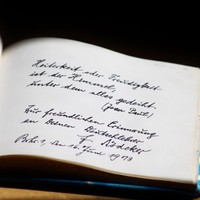 Heiterkeit oder Freudigkeit
ist der Himmel,
unter dem alles gedeiht.
(Jean Paul)
Zur freundlichen Erinnerung
an Deinen Deutschlehrer
F. Rädeker
16. Juni 1978